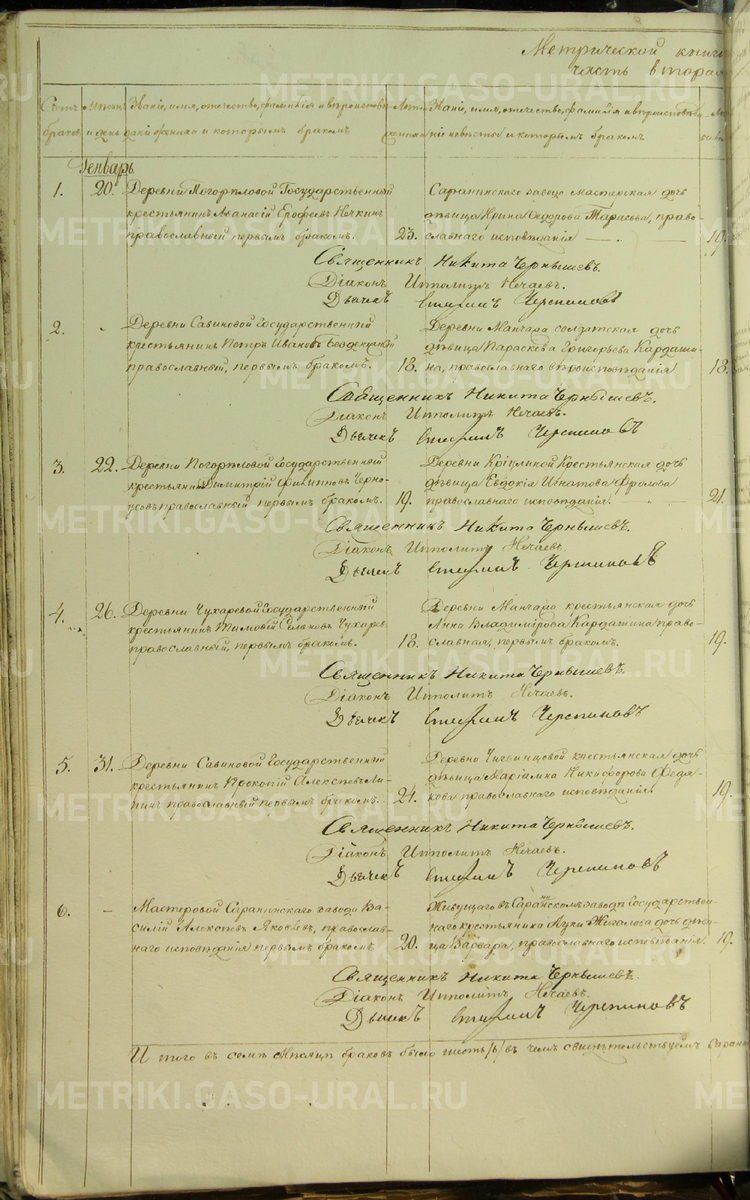 METRIKI.GASO-URAL.RU
Метрической книги
часть вторая
Счетъ браковъ
Мѣсяцъ и день
Званіе, имя, отечество, фамилія и вѣроисповѣ-
даніе жениха и которымъ бракомъ
Лѣта жениха
Званіе, имя, отечество, фамилія и вѣроисповѣда-
ніе невѣсты и которымъ бракомъ
Генварь
1. 20.
Деревни Государственный
крестьянинъ Аѳанасій Ерофеевъ Нечкинъ
православный первымъ бракомъ. 23.
Саранинскаго завода мастерская дочь
дѣвица Ирина Сидорова Тарасова, право-
славнаго исповѣданія 19.
Священникъ Никита Чернышевъ.
Діаконъ Ипполитъ Нечаевъ.
Дьячекъ Черепановъ
2. "
Деревни Савиновой Государственный
крестьянинъ Петръ Ивановъ
православный, первымъ бракомъ. 18.
Деревни Манчажа солдатская дочь
дѣвица Параскева Григорьева Кардаши-
на, православнаго вѣроисповѣданія 18.
Священникъ Никита Чернышевъ.
Діаконъ Ипполитъ Нечаевъ.
Дьячекъ Черепановъ
3. 22.
Деревни Государственный
крестьянинъ Димитрій Филиповъ Черно-
усовъ православный первымъ бракомъ. 19.
Деревни Крестьянская дочь
дѣвица Евдокія Игнатова Фролова
православнаго исповѣданія. 21.
Священникъ Никита Чернышевъ.
Діаконъ Ипполитъ Нечаевъ.
Дьячекъ Черепановъ
4. 26.
Деревни Чухаревой Государственный
крестьянинъ Тимофей Чухаревъ
православный, первымъ бракомъ. 18.
Деревни Манчажа крестьянская дочь
Анна Владимірова Кардашина право-
славная, первымъ бракомъ. 19.
Священникъ Никита Чернышевъ.
Діаконъ Ипполитъ Нечаевъ.
Дьячекъ Черепановъ
5. 31.
Деревни Савиновой Государственный
крестьянинъ Прокопій Алексѣевъ Ля-
пинъ православный первымъ бракомъ. 24.
Деревни крестьянская дочь
дѣвица Маріамна Никифорова Федя-
кова православнаго исповѣданія. 19.
Священникъ Никита Чернышевъ.
Діаконъ Ипполитъ Нечаевъ.
Дьячекъ Черепановъ
6. –
Мастеровой Саранинскаго завода Ва-
силій Алексѣевъ Яковлевъ, православ-
наго исповѣданія первымъ бракомъ. 20.
Живущаго въ Саранинскомъ заводѣ Государствен-
наго крестьянина Луки Жигалова дочь дѣви-
ца Варвара, православнаго исповѣданія. 19.
Священникъ Никита Чернышевъ.
Діаконъ Ипполитъ Нечаевъ.
Дьячекъ Черепановъ
Итого въ семъ мѣсяцѣ браковъ было шесть /6/ въ чемъ свидѣтельствуемъ